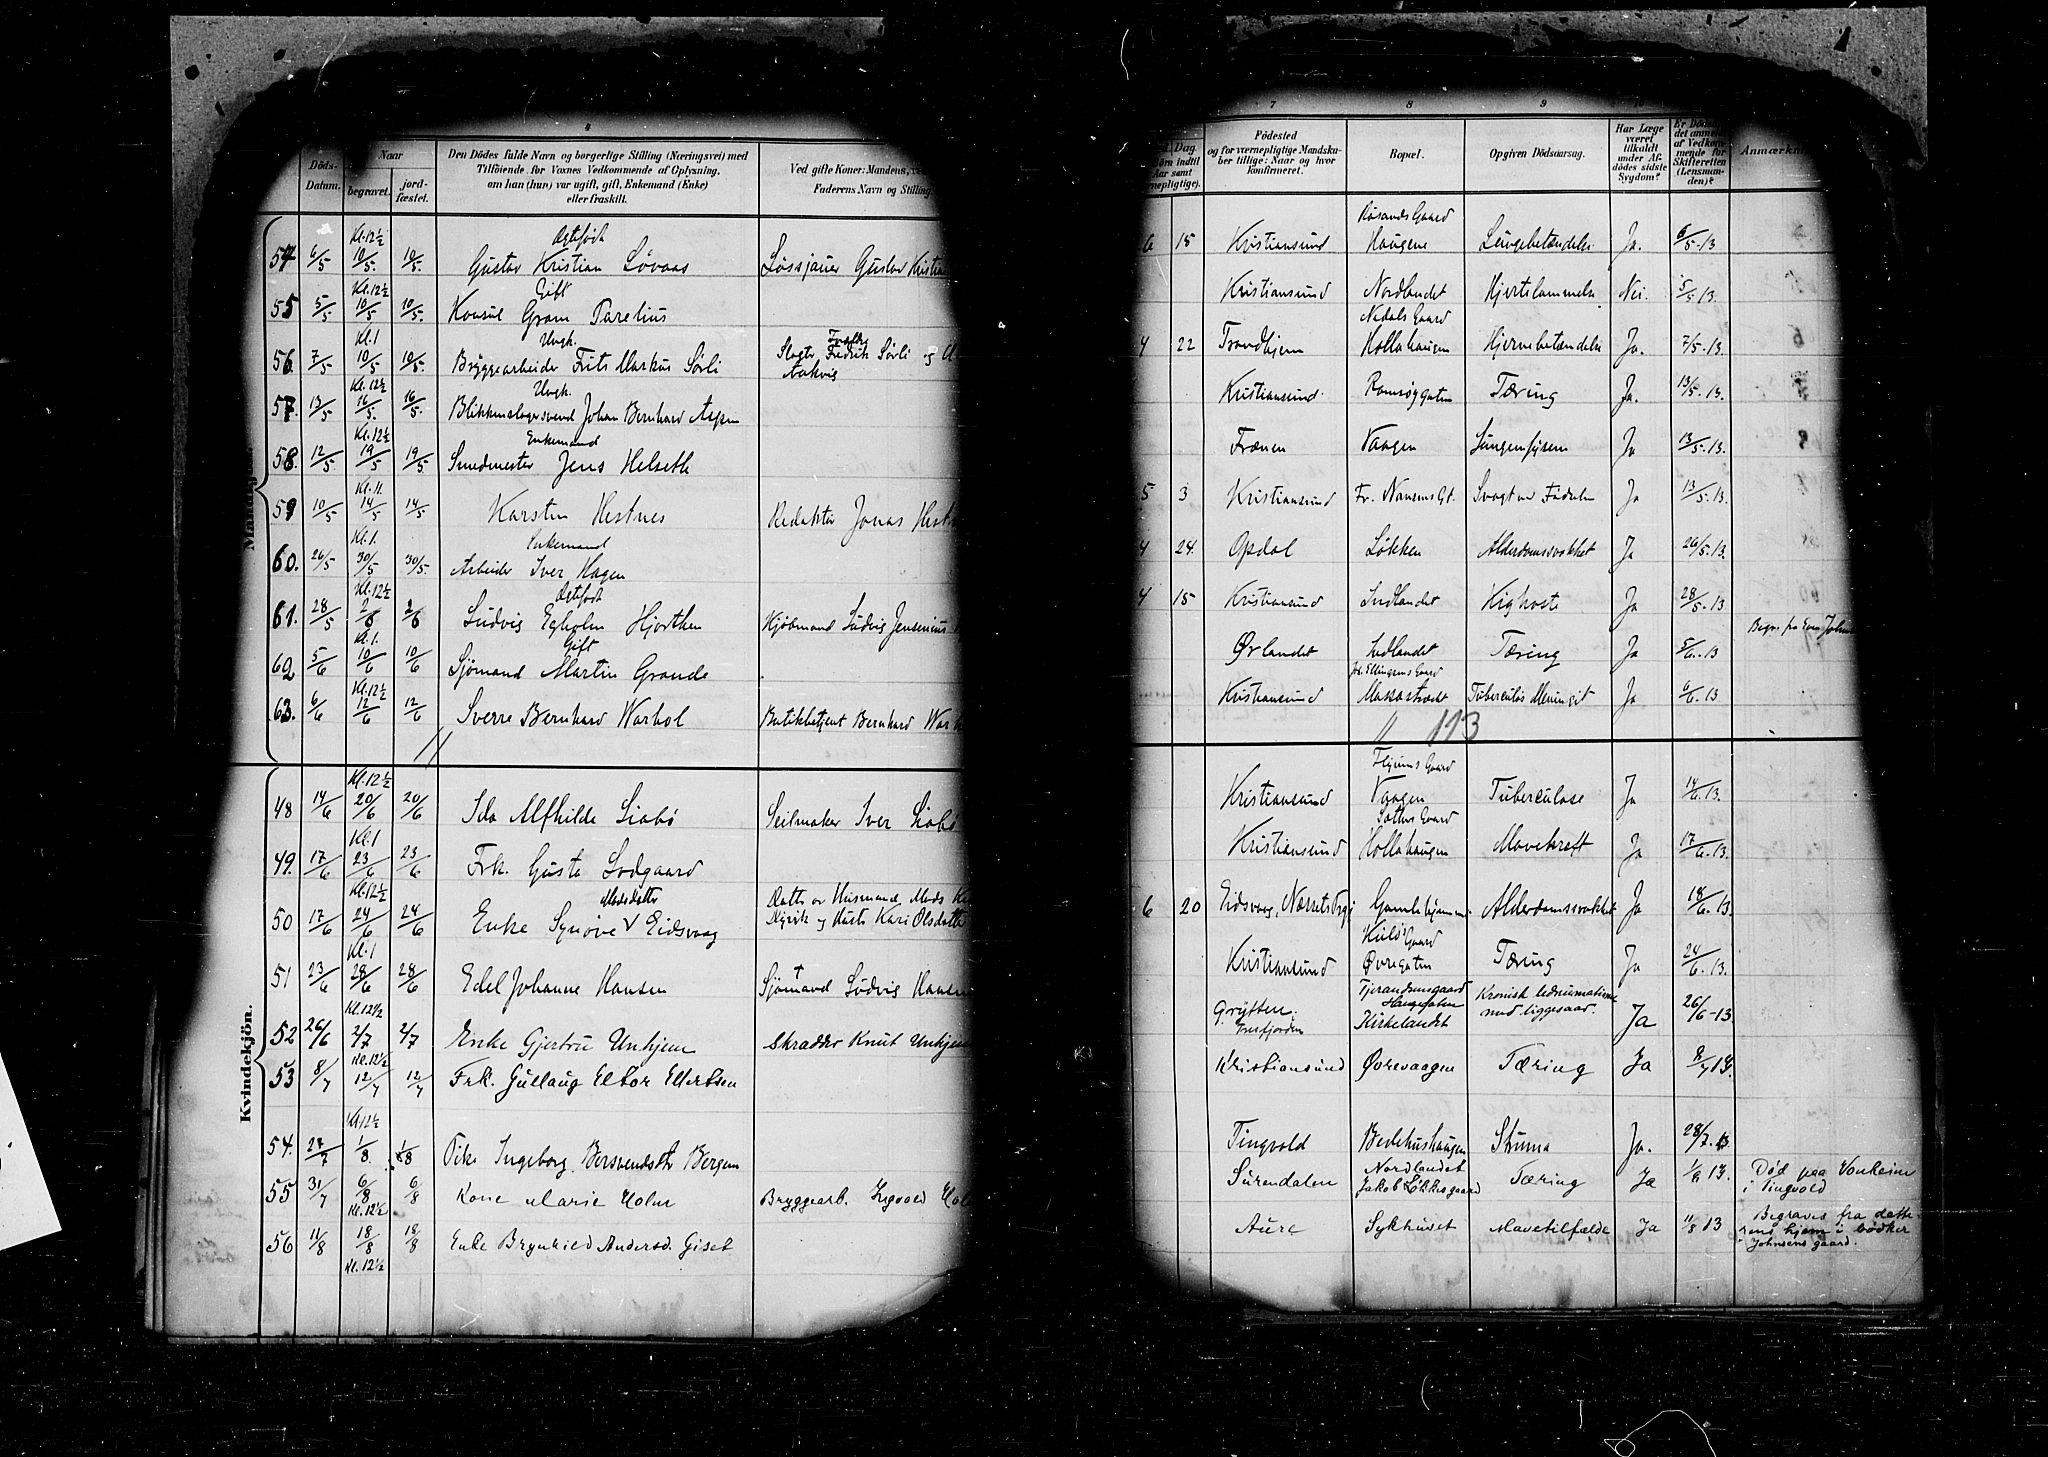 4
Döds-
Datum.
Naar
begravet.
jord-
fæstet.
Den Dödes fulde Navn og borgerlige Stilling (Næringsvei) med
Tilföiende for Voxnes Vedkommende af Oplysning,
om han (hun) var ugift, gift, Enkemand (Enke)
eller fraskilt.
Ved gifte Koner: Mandens,
Faderens Navn og Stilling.
Kl. 12½
Ægtefødt
54 6/5 10/5. 10/5. Gustav Kristian Løvaas Løssjauer Gustav Kristian
Kl. 12½
Gift
55 5/5 10/5 10/5. Konsul Gram Parelius
Kl. 1
Uugk.
56. 7/5 10/5 10/5. Bryggearbeider Frits Markus Sørli Slagter Fredrik Sørli og
Aakvig
Kl. 12½
Uugk.
57. 13/5 16/5. 16/5. Blikkenslagersvend Johan Bernhard Aspen
Kl. 12½
Enkemand
58. 12/5 19/5 19/5. Smedmester Jens Helseth
Kl. 11.
59 10/5 14/5 14/5 Karsten Hestnes Redaktør Jonas
Kl. 1.
Enkemand
60. 26/5 30/5 30/5. Arbeider Iver Hagen
Kl. 12½
Ægtefødt
61. 28/5 2/6 2/6 Ludvig Egholm Hjorthen Kjøbmand Ludvig Jensenius
Kl. 1.
Gift
62 5/6 10/6 10/6 Sjømand Martin Grande
Kl. 12½
63. 6/6 12/6 12/6 Sverre Bernhard Warhol Butikbetjent Bernhard
Kvindekjön.
Kl. 12½
48 14/6 20/6 20/6 Ida Alfhilde Liabø Seilmaker Iver Liabø
Kl. 1
49. 17/6 23/6 23/6 Frk. Gusta Lodgaard
Kl. 12½
Madsdatter
Datter av Husmand Mads
50 17/6 24/6 24/6 Enke Synøve V Eidsvaag og Hustr Kari Olsdatter
Kl. 1
51 23/6 28/6 28/6 Edel Johanne Hansen Sjømand Ludvig Hansen
Kl. 12½
52 26/6 2/7 2/7 Enke Gjertru Unhjem Skrædder Knut Unhjem
Kl. 12½
53 8/7 12/7 12/7 Frk. Gullaug Ellertsen
Kl 12½
54. 27/7 1/8. 1/8 Pike Ingeborg Bersvendsdtr Bergem
55 31/7 6/8 6/8 Kone Marie Holm Bryggearb. Ingvald
Kl. 12½
56 11/8 18/8 18/8 Enke Brynhild Andersd. Giset
Kl. 12½
7
8
9
10
Dag.
Födested
og for værnepligtige Mandska-
ber tillige: Naar og hvor
konfirmeret.
Bopæl.
Opgiven Dödsaarsag.
Har Læge
været
tilkaldt
under Af-
dödes sidste
Sygdom?
det anmeldt
af Vedkom-
mende for
Skifteretten
(Lensman-
den)?
Anmærkn
Røsands Gaard
6 15 Kristiansund Haugene Lungebetændelse Ja. 6/5.13
Kristiansund Nordlandet Hjertelammelse Nei. 5/5 13.
Nedals Gaard
4 22 Trondhjem Hollahaugen Hjernebetændelse Ja. 7/5.13.
Kristiansund. Romsøygaten Tæring Ja. 13/5.13.
Frænen Vaagen Ja 13/5.13.
5 3 Kristiansund Fr. Nansens Gt. Svagt ved Fødselen Ja 13/5.13.
4 24. Opdal Løkken Alderdomssvakhet Ja 26/5.13.
4 15 Kristiansund Indlandet Kighoste Ja 28/5.13
Ørlandet Indlandet Tæring Ja 5/6.13
Kristiansund Tuberculøs Meningit Ja 6/6.13
113
Kristiansund Vaagen Tuberculose Ja 14/6.13.
Kristiansund Hollahaugen Mavekræft Ja 17/6.13.
6 20 Eidsvaag, Gamlehjemmet Alderdomssvakhet Ja 18/6.13.
Gaard
Kristiansund Øvregaten Tæring Ja 24/6.13.
Tjerandsensgaard
Haugegaten
Kronisk ledreumatisme
Grytten. Kirkelandet med liggesaar. Ja 26/6-13
Kristiansund Ørevaagen Tæring Ja 8/7 13.
Tingvold Bedehushaugen Struma Ja. 28/7.13
Nordlandet
Surendalen Jakob Løkkesgaard Tæring Ja 1/8 13. Død paa Vonheim
i Tingvold
Aure Sykhuset Mavetilfælde Ja 11/8 13 Begraves fra datte-
rens hjem i bødker
Johnsens gaard.